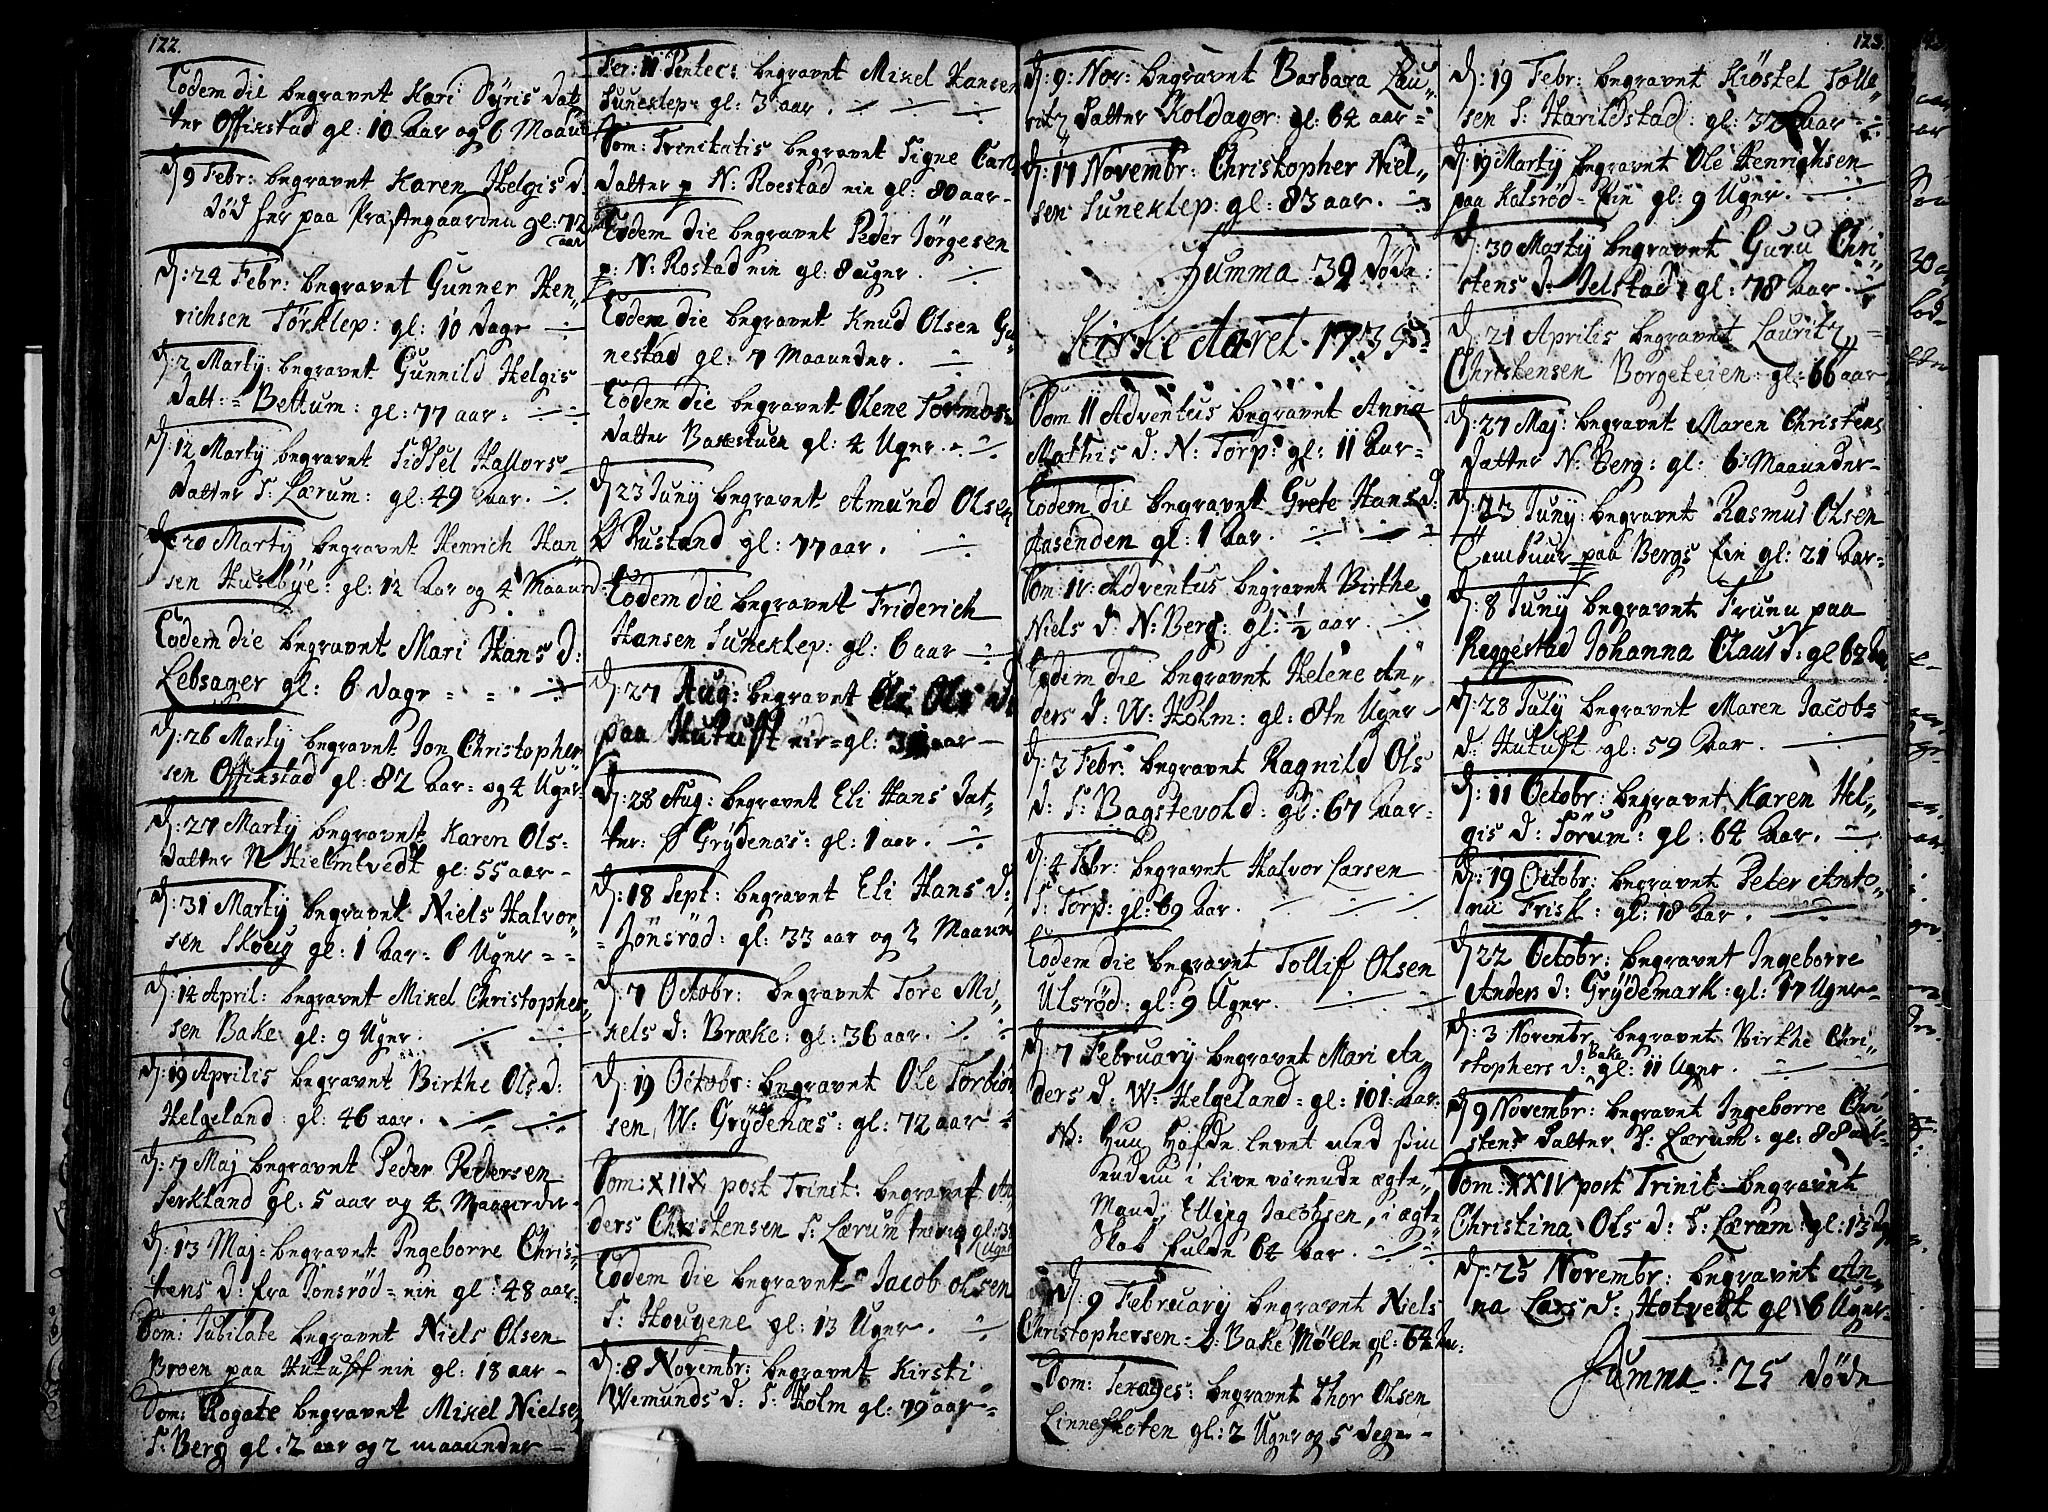 122.
Eodem die begravet Kari Syris Dat
ter Offikstad gl: 10 Aar og 6 Maaun
D: 9 Febr: begravet Karen Helgis D.
død her paa Præstegaarden gl: 72
aar
D: 24 Febr: begravet Gunner Hen„
richsen Törklep: gl: 10 Dage ÷
D: 2 Martij: begravet Gunnild Helgis
Datt: = Bettum: gl: 77 aar: ÷
D: 12 Martij begravet Sidsel Hallors
Datter S: Lærum: gl: 49 Aar. ÷
D: 20 Martij begravet Henrich Han„
sen Husebÿe: gl: 12 Aar og 4 Maaund
Eodem die begravet Mari Hans D:
Lebsager gl: 6 Dage = = ÷
D: 26 Martij begravet Jon Christopher
sen Offikstad gl: 82 Aar = og 4 Uger
D: 27 Martij begravet Karen Ols=
Datter N Hielmtvedt gl: 55 aar –
D: 31 Martij begravet Niels Halvor„
sen Skoug gl: 1 Aar = 6 Uger = =
D: 14 April: begravet Mikel Christopher
sen Bake gl: 9 Uger. ÷ ÷
D: 19 Aprilis begravet Birthe Ols D:
Helgeland gl: 46 aar. ÷ ÷
D: 7 Maj begravet Peder Pedersen
Serkland gl: 5 aar og 4 Maaneder-
D: 13 Maj = begravet Ingeborre Chris=
tens D: fra Jonsröd = ein gl: 48 aar=
Dom: Jubilate begravet Niels Olsen
Broen paa Hutuft ein gl: 18 aar –
Dom: Rogate begravet Mikel Nielse
S: Berg gl: 2 aar og 2 maaunder –
Fer: II Pentec: begravet Mikel Hansen
Suneklep: gl: 3 aar. ÷ ÷ ÷
Dom: Trinitatis begravet Signe Carls
Datter p N: Roestad ein gl: 80 aar -
Eodem die begravet Peder Jörgesen
p: N: Rostad ein gl: 8 uger. ÷
Eodem die begravet Knud Olsen Gu„
nestad gl: 7 Maaunder. ÷
Eodem die begravet Olene Tormos=
Datter Bakestuen gl: 4 Uger. ÷
D 23 Junij begravet Amund Olsen
Ø Rustand gl: 77 aar. ÷
Eodem die begravet Friderich
Hansen Suneklep: gl: 6 aar ÷
D: 27 Aug: begravet Ols D
paa Hutuft eie = gl: aar –
D: 28 Aug: begravet Eli Hans Dat„
ter: Ø Grÿdenæs: gl: 1 aar. ÷
D: 18 Sept: begravet Eli Hans D:
= Jönsröd: gl: 33 aar og 2 Maaun
D: 7 Octobr: begravet Tore Mi„
kels D: Bræke: gl: 36 aar. ÷ ÷
D: 19 Octobr: begravet Ole Torbiön
sen, W: Grÿdenæs: gl: 72 aar ÷
Dom: XIIX post Trinit: begravet An„
ders Christensen S: Lærum gl: 3
Uger
Eodem die begravet Jacob Olsen
S: Hougene gl: 13 Uger. ÷
D: 8 Novembr: begravet Kirsti
Wemunds D: S: Holm gl: 79 aar =
123.
D: 9: Nov: begravet Barbara Lau„
ritz Datter Koldager: gl: 64 aar =
D: 17 Novembr: Christopher Niel„
sen Suneklep: gl: 83 aar. ÷
Summa 39 Døde:
Kirke Aaret 1735
Dom II Adventus begravet Anna
Mathis D: N: Torp: gl: 11 Aar=
Eodem die begravet Grete Hans D:
Aasenden gl: 1 Aar. ÷ ÷ ÷
Dom: IV: Adventus begravet Birthe
Niels D: N: Berg: gl: ½ aar. ÷
Eodem die begravet Helene An„
ders D: W: Holm: gl: 8te Uger –
D: 3 Febr: begravet Ragnild Ols
D: S: Bagstevold: gl: 67 Aar=
D: 4 Febr: begravet Halvor Larsen
S: Torp: gl: 69 Aar. ÷ ÷ ÷
Eodem die begravet Tollif Olsen
Ulsröd: gl: 9 Uger. ÷ ÷
D: 7 February begravet Mari An„
ders D: W: Helgeland = gl: 101 = Aar:
Nb: Hun hafde levet med sin
endnu i live værende ægte„
Mand, Elling Jacobsen, i ægte
skab fulde 64 Aar. ÷ ÷
D: 9 February begravet Niels
Christophersen = S: Bake Mølle gl: 64 Aar:
Dom: Sexages: begravet Thor Olsen
Linneskoten gl: 2 Uger og 5 Dage –
D: 19 Febr: begravet Kiöstel Tolle„
sen S: Harildstad: gl: 37 Aar ÷
D: 19 Martij begravet Ole Henrichsen
paa Kolsröd = Eie gl: 9 Uger. ÷
D: 30 Martij begravet Guru Chri„
stens D: Jelstad: gl: 78 Aar. ÷
D: 21 Aprilis begravet Lauritz
Christensen Borgeteien: gl: 66 aar
D: 27 Maj: begravet Maren Christens
Datter N: Berg: gl: 6: Maaunder –
D: 23 Junij: begravet Rasmus Olsen
Tambuur paa Bergs Ein gl: 21 Aar=
D: 8 Junij begravet Fruen paa
Reggestad Johanna Claus D: gl 62 Aar
D: 28 Julij begravet Maren Jacobs=
D: Hutuft gl: 59 Aar. ÷
D: 11 Octobr: begravet Karen Hel„
gis D: Sörum: gl: 64 Aar. ÷
D: 19 Octobr: begravet Peter Anto„
nii Frisk: gl: 18 Aar. ÷
D: 22 Octobr: begravet Ingeborre
Anders D: Grÿdemark: gl: 17 Uger=
D: 3 Novembr begravet Birthe Chri„
Bake
stophers D: gl: 11 Uger. ÷ ÷
D 9 Novembr: begravet Ingeborre Chri
stens Datter S: Lærum = gl: 88 aar
Dom: XXIV post Trinit begravet
Christina Ols D: S: Lærum: gl: 13
D: 25 Novembr: begravet An„
na Lars D: Hotvedt gl 6 Uger:
Summa: 25 døde